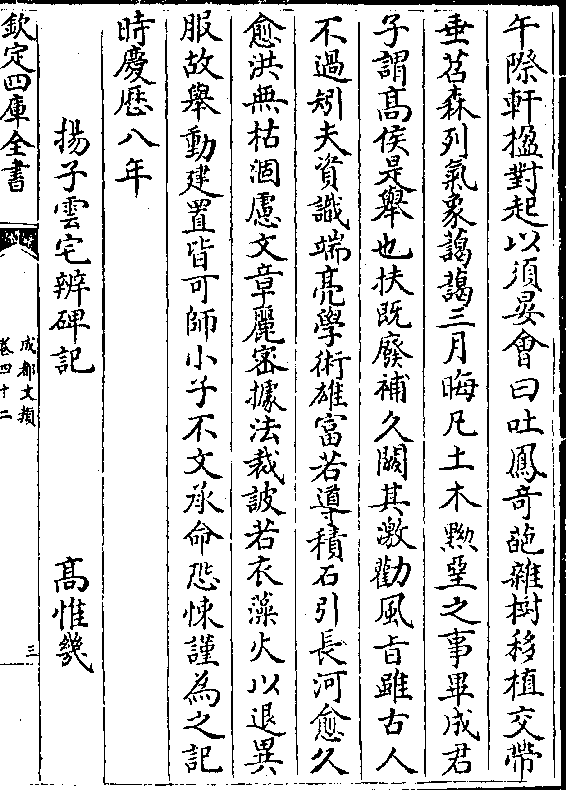 午際軒楹對起以須宴會曰吐鳳奇葩雜樹移植交帶
垂苕森列氣象藹藹三月晦凡土木黝堊之事畢成君
子謂髙侯是舉也扶既廢補久闕其激勸風旨雖古人
不過矧夫資識端亮學術雄富若導積石引長河愈久
愈洪無枯涸慮文章麗密據法裁詖若衣藻火以退異
服故舉動建置皆可師小子不文承命恐悚謹為之記
時慶歴八年
揚子雲宅辨碑記 髙惟幾
欽定四庫全書
成都文類
卷四十二
三